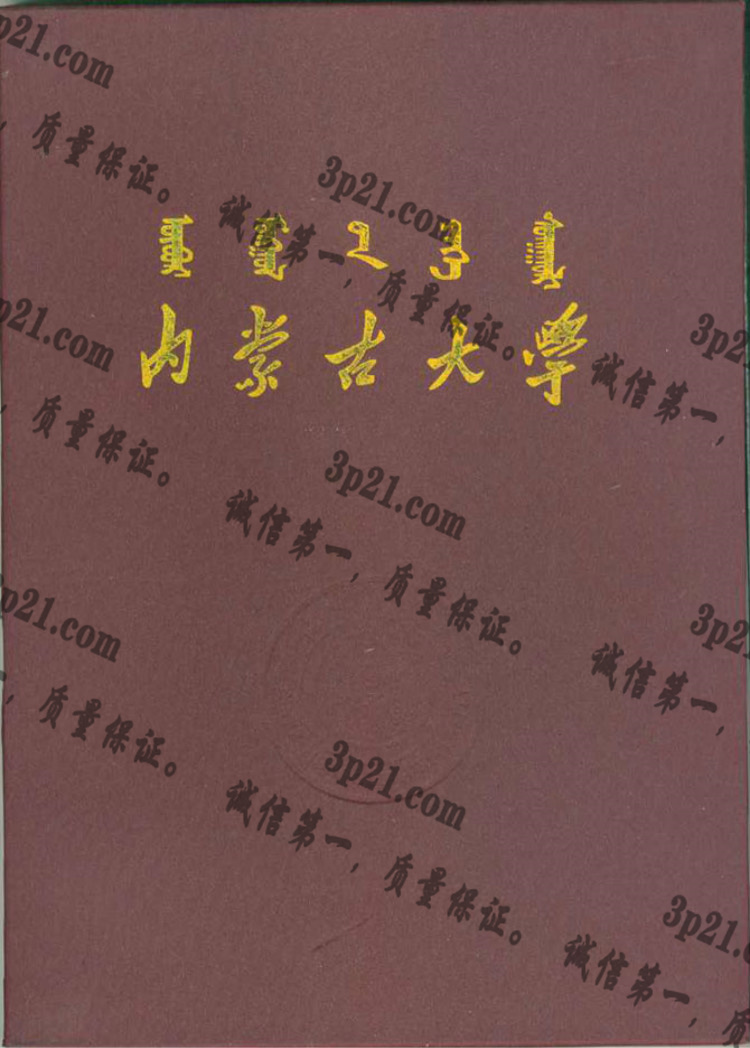 3p21.com
质量保证。
3p21.com
诚信第一，质量保证。
内蒙古大学
3p21.com
诚信第一，
质量保证。
3p21.com
诚信第一，质量保证。
3p21.com
3p21.com
诚信第一，
质量保证。
3p21.com
诚信第一，质量保证。
3p21.com
诚信第一，质